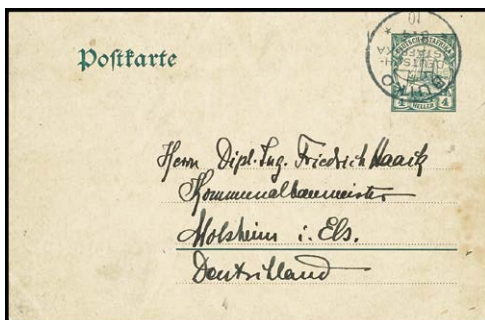 Postkarte
DEUTSCH-OSTAFRIKA
4 HELLER 4
BUIKO
DEUTSCH-
OSTAFRIKA
10
Herrn Dipl. Ing. Friedrich Haack
Kommunalbaumeister
Molsheim i. Els.
Deutschland